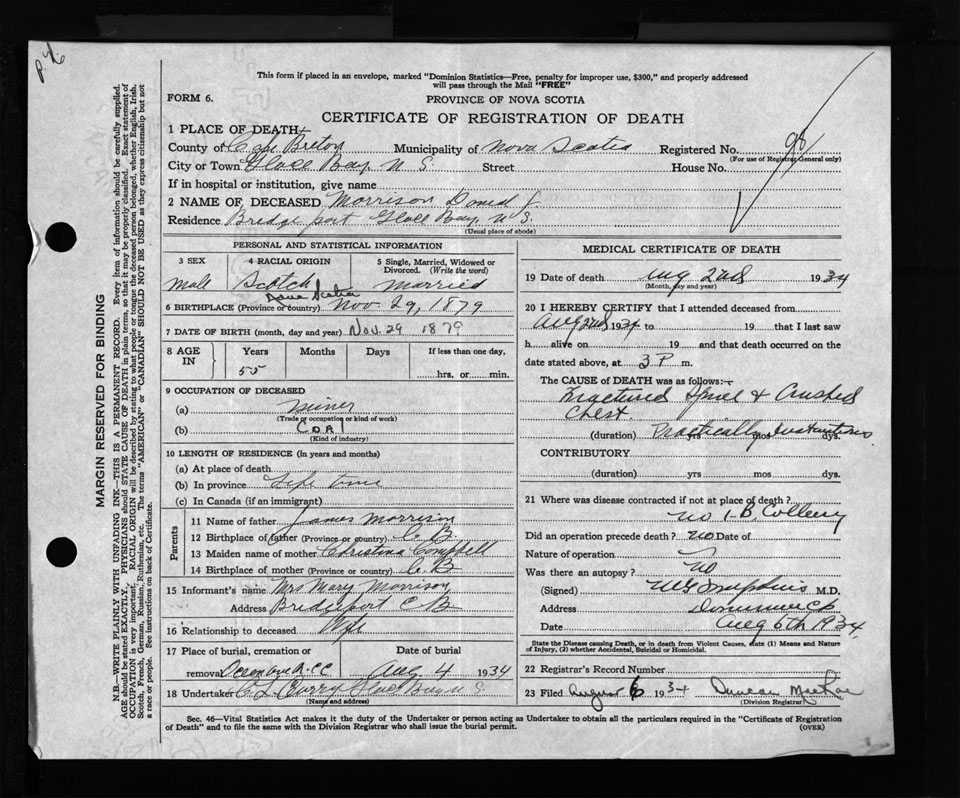 p. 46
This form if placed in an envelope, marked "Dominion Statistics—Free, penalty for improper use, $300," and properly addressed
will pass through the Mail "FREE"
FORM 6.
PROVINCE OF NOVA SCOTIA
CERTIFICATE OF REGISTRATION OF DEATH
1 PLACE OF DEATH
County of Cape Breton Municipality of Nova Scotia Registered No. 98
(For use of Registrar General only)
City or Town Glace Bay, N S Street House No.
If in hospital or institution, give name
2 NAME OF DECEASED Morrison Daniel J
Residence Bridgeport Glace Bay, N. S.
(Usual place of abode)
PERSONAL AND STATISTICAL INFORMATION
3 SEX
4 RACIAL ORIGIN
5 Single, Married, Widowed or
Divorced. (Write the word)
Male Scotch Married
Nova Scotia
6 BIRTHPLACE (Province or country) Nov. 29, 1879
7 DATE OF BIRTH (month, day and year) Nov. 29 1879
8 AGE IN
Years Months Days If less than one day,
55 hrs. or min.
9 OCCUPATION OF DECEASED
(a) Miner
(Trade or occupation or kind of work)
(b) Coal
(Kind of industry)
10 LENGTH OF RESIDENCE (in years and months)
(a) At place of death
(b) In province Life time
(c) In Canada (if an immigrant)
Parents
11 Name of father James Morrison
12 Birthplace of father (Province or country) C. B.
13 Maiden name of mother Christina Campbell
14 Birthplace of mother (Province or country) C. B
15 Informant's name Mrs Mary Morrison
Address Bridgeport C B
16 Relationship to deceased Wife
17 Place of burial, cremation or Date of burial
removal R. C C Aug 4 1934
18 Undertaker C L Curry Glace Bay N S
(Name and address)
MEDICAL CERTIFICATE OF DEATH
19 Date of death Aug 2nd 1934
(Month, day and year)
20 I HEREBY CERTIFY that I attended deceased from
Aug 2nd 1934 to 19 that I last saw
h alive on 19 and that death occurred on the
date stated above, at 3 P m.
The CAUSE of DEATH was as follows:—
Fractured Spine & Crushed
Chest
(duration) Practically yrs mos Instantaneous dys.
CONTRIBUTORY
(duration) yrs mos dys.
21 Where was disease contracted if not at place of death?
No 1-B. Colliery
Did an operation precede death? no Date of
Nature of operation
Was there an autopsy? No
(Signed) M.D.
Address Dominion C B
Date Aug 6th 1934
State the Disease causing Death, or in death from Violent Causes, state (1) Means and Nature
of Injury, (2) whether Accidental, Suicidal or Homicidal.
22 Registrar's Record Number
23 Filed August 6 1934 Duncan MacRae
(Division Registrar)
Sec. 46—Vital Statistics Act makes it the duty of the Undertaker or person acting as Undertaker to obtain all the particulars required in the "Certificate of Registration
of Death" and to file the same with the Division Registrar who shall issue the burial permit.
(OVER)
MARGIN RESERVED FOR BINDING
N.B.—WRITE PLAINLY WITH UNFADING INK—THIS IS A PERMANENT RECORD. Every item of information should be carefully supplied.
AGE should be stated EXACTLY. PHYSICIANS should STATE CAUSE OF DEATH in plain terms, so that it may be properly classified. Exact statement of
OCCUPATION is very important. RACIAL ORIGIN will be described by stating to what people or tongue the deceased person belonged, whether English, Irish,
Scotch, French, German, Russian, Ruthenian, etc. The terms "AMERICAN" or "CANADIAN" SHOULD NOT BE USED as they express citizenship but not
a race or people. See instructions on back of Certificate.